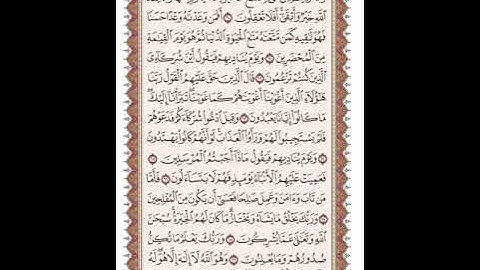 ٱللَّهِ خَيْرٌ وَأَبْقَىٰٓ أَفَلَا تَعْقِلُونَ ۝ أَفَمَن وَعَدْنَٰهُ وَعْدًا حَسَنًا
فَهُوَ لَٰقِيهِ كَمَن مَّتَّعْنَٰهُ مَتَٰعَ ٱلْحَيَوٰةِ ٱلدُّنْيَا ثُمَّ هُوَ يَوْمَ ٱلْقِيَٰمَةِ
مِنَ ٱلْمُحْضَرِينَ ۝ وَيَوْمَ يُنَادِيهِمْ فَيَقُولُ أَيْنَ شُرَكَآءِىَ
ٱلَّذِينَ كُنتُمْ تَزْعُمُونَ ۝ قَالَ ٱلَّذِينَ حَقَّ عَلَيْهِمُ ٱلْقَوْلُ رَبَّنَا
هَٰٓؤُلَآءِ ٱلَّذِينَ أَغْوَيْنَآ أَغْوَيْنَٰهُمْ كَمَا غَوَيْنَا تَبَرَّأْنَآ إِلَيْكَ
مَا كَانُوٓا۟ إِيَّانَا يَعْبُدُونَ ۝ وَقِيلَ ٱدْعُوا۟ شُرَكَآءَكُمْ فَدَعَوْهُمْ
فَلَمْ يَسْتَجِيبُوا۟ لَهُمْ وَرَأَوُا۟ ٱلْعَذَابَ لَوْ أَنَّهُمْ كَانُوا۟ يَهْتَدُونَ
۝ وَيَوْمَ يُنَادِيهِمْ فَيَقُولُ مَاذَآ أَجَبْتُمُ ٱلْمُرْسَلِينَ ۝
فَعَمِيَتْ عَلَيْهِمُ ٱلْأَنۢبَآءُ يَوْمَئِذٍ فَهُمْ لَا يَتَسَآءَلُونَ ۝ فَأَمَّا
مَن تَابَ وَءَامَنَ وَعَمِلَ صَٰلِحًا فَعَسَىٰٓ أَن يَكُونَ مِنَ ٱلْمُفْلِحِينَ
۝ وَرَبُّكَ يَخْلُقُ مَا يَشَآءُ وَيَخْتَارُ مَا كَانَ لَهُمُ ٱلْخِيَرَةُ سُبْحَٰنَ
ٱللَّهِ وَتَعَٰلَىٰ عَمَّا يُشْرِكُونَ ۝ وَرَبُّكَ يَعْلَمُ مَا تُكِنُّ
صُدُورُهُمْ وَمَا يُعْلِنُونَ ۝ وَهُوَ ٱللَّهُ لَآ إِلَٰهَ إِلَّا هُوَ لَهُ